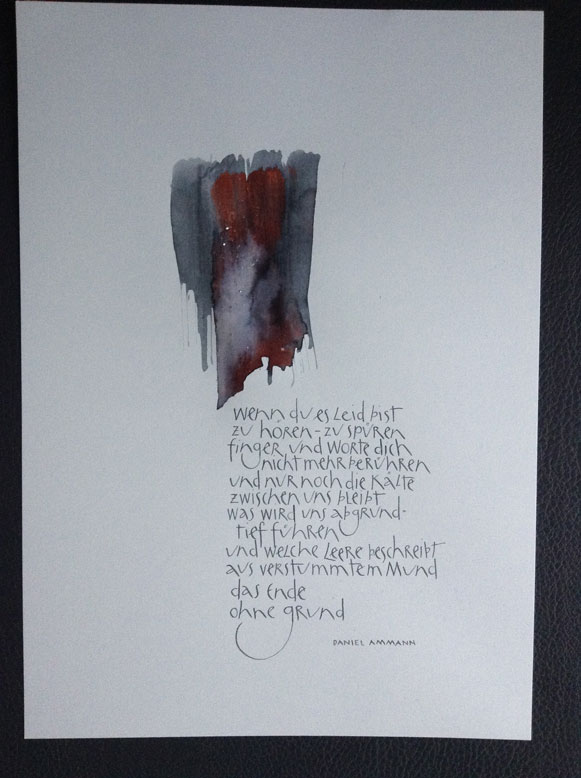 wenn du es Leid bist
zu hören - zu spüren
finger und worte dich
nicht mehr berühren
und nur noch die Kälte
zwischen uns bleibt
was wird uns abgrund-
tief führen
und welche Leere beschreibt
aus verstummtem Mund
das Ende
ohne grund
DANIEL AMMANN